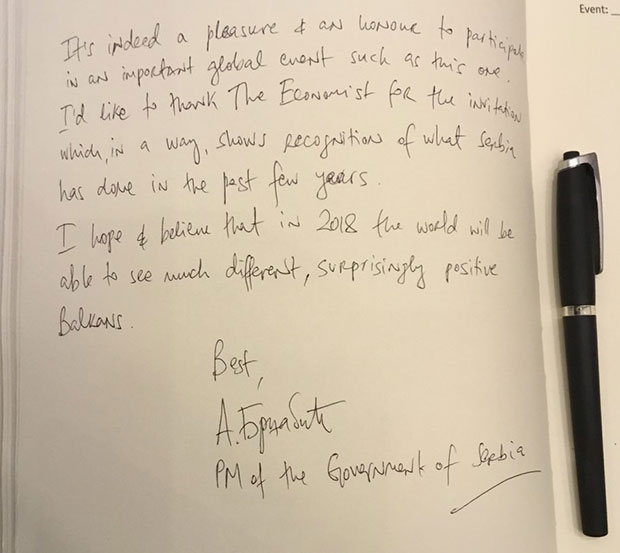 Event: _
It's indeed a pleasure & an honour to participate
in an important global event such as this one.
I'd like to thank The Economist for the invitation
which, in a way, shows recognition of what Serbia
has done in the past few years.
I hope & believe that in 2018 the world will be
able to see much different, surprisingly positive
Balkans.
Best,
А. Брнабић
PM of the Government of Serbia